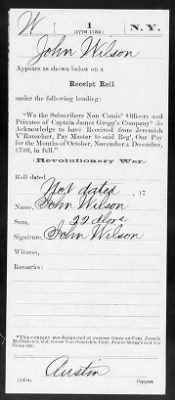 W | 1 | N. Y.
(1776-1783.)
John Wilson
Appears as shown below on a
Receipt Roll
under the following heading:
"We the Subscribers Non Comis' Officers and
Privates of Captain James Gregg's Company* do
Acknowledge to have Received from Jeremiah
V'Rensclaer, Pay Master to said Reg', Our Pay
for the Months of October, November & December,
1780, in full."
(Revolutionary War.)
Roll dated
Not dated, 17
Name, John Wilson
Sum, 22 dlors
Signature, John Wilson
Witness,
Remarks:
*This company was designated at various times as Capt.
Company.
Austin
Copyist.